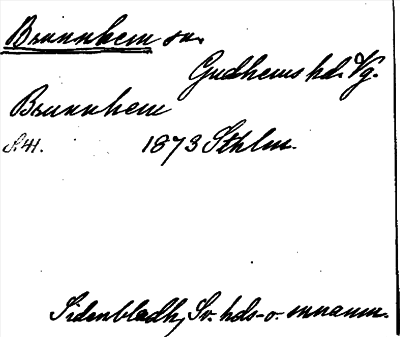 Brunnhem sn.
Gudhems hd. Vg.
Brunnhem
S. 41. 1873 Sthlm.
Sidenbladh, Sv. hds- o. snnamn.